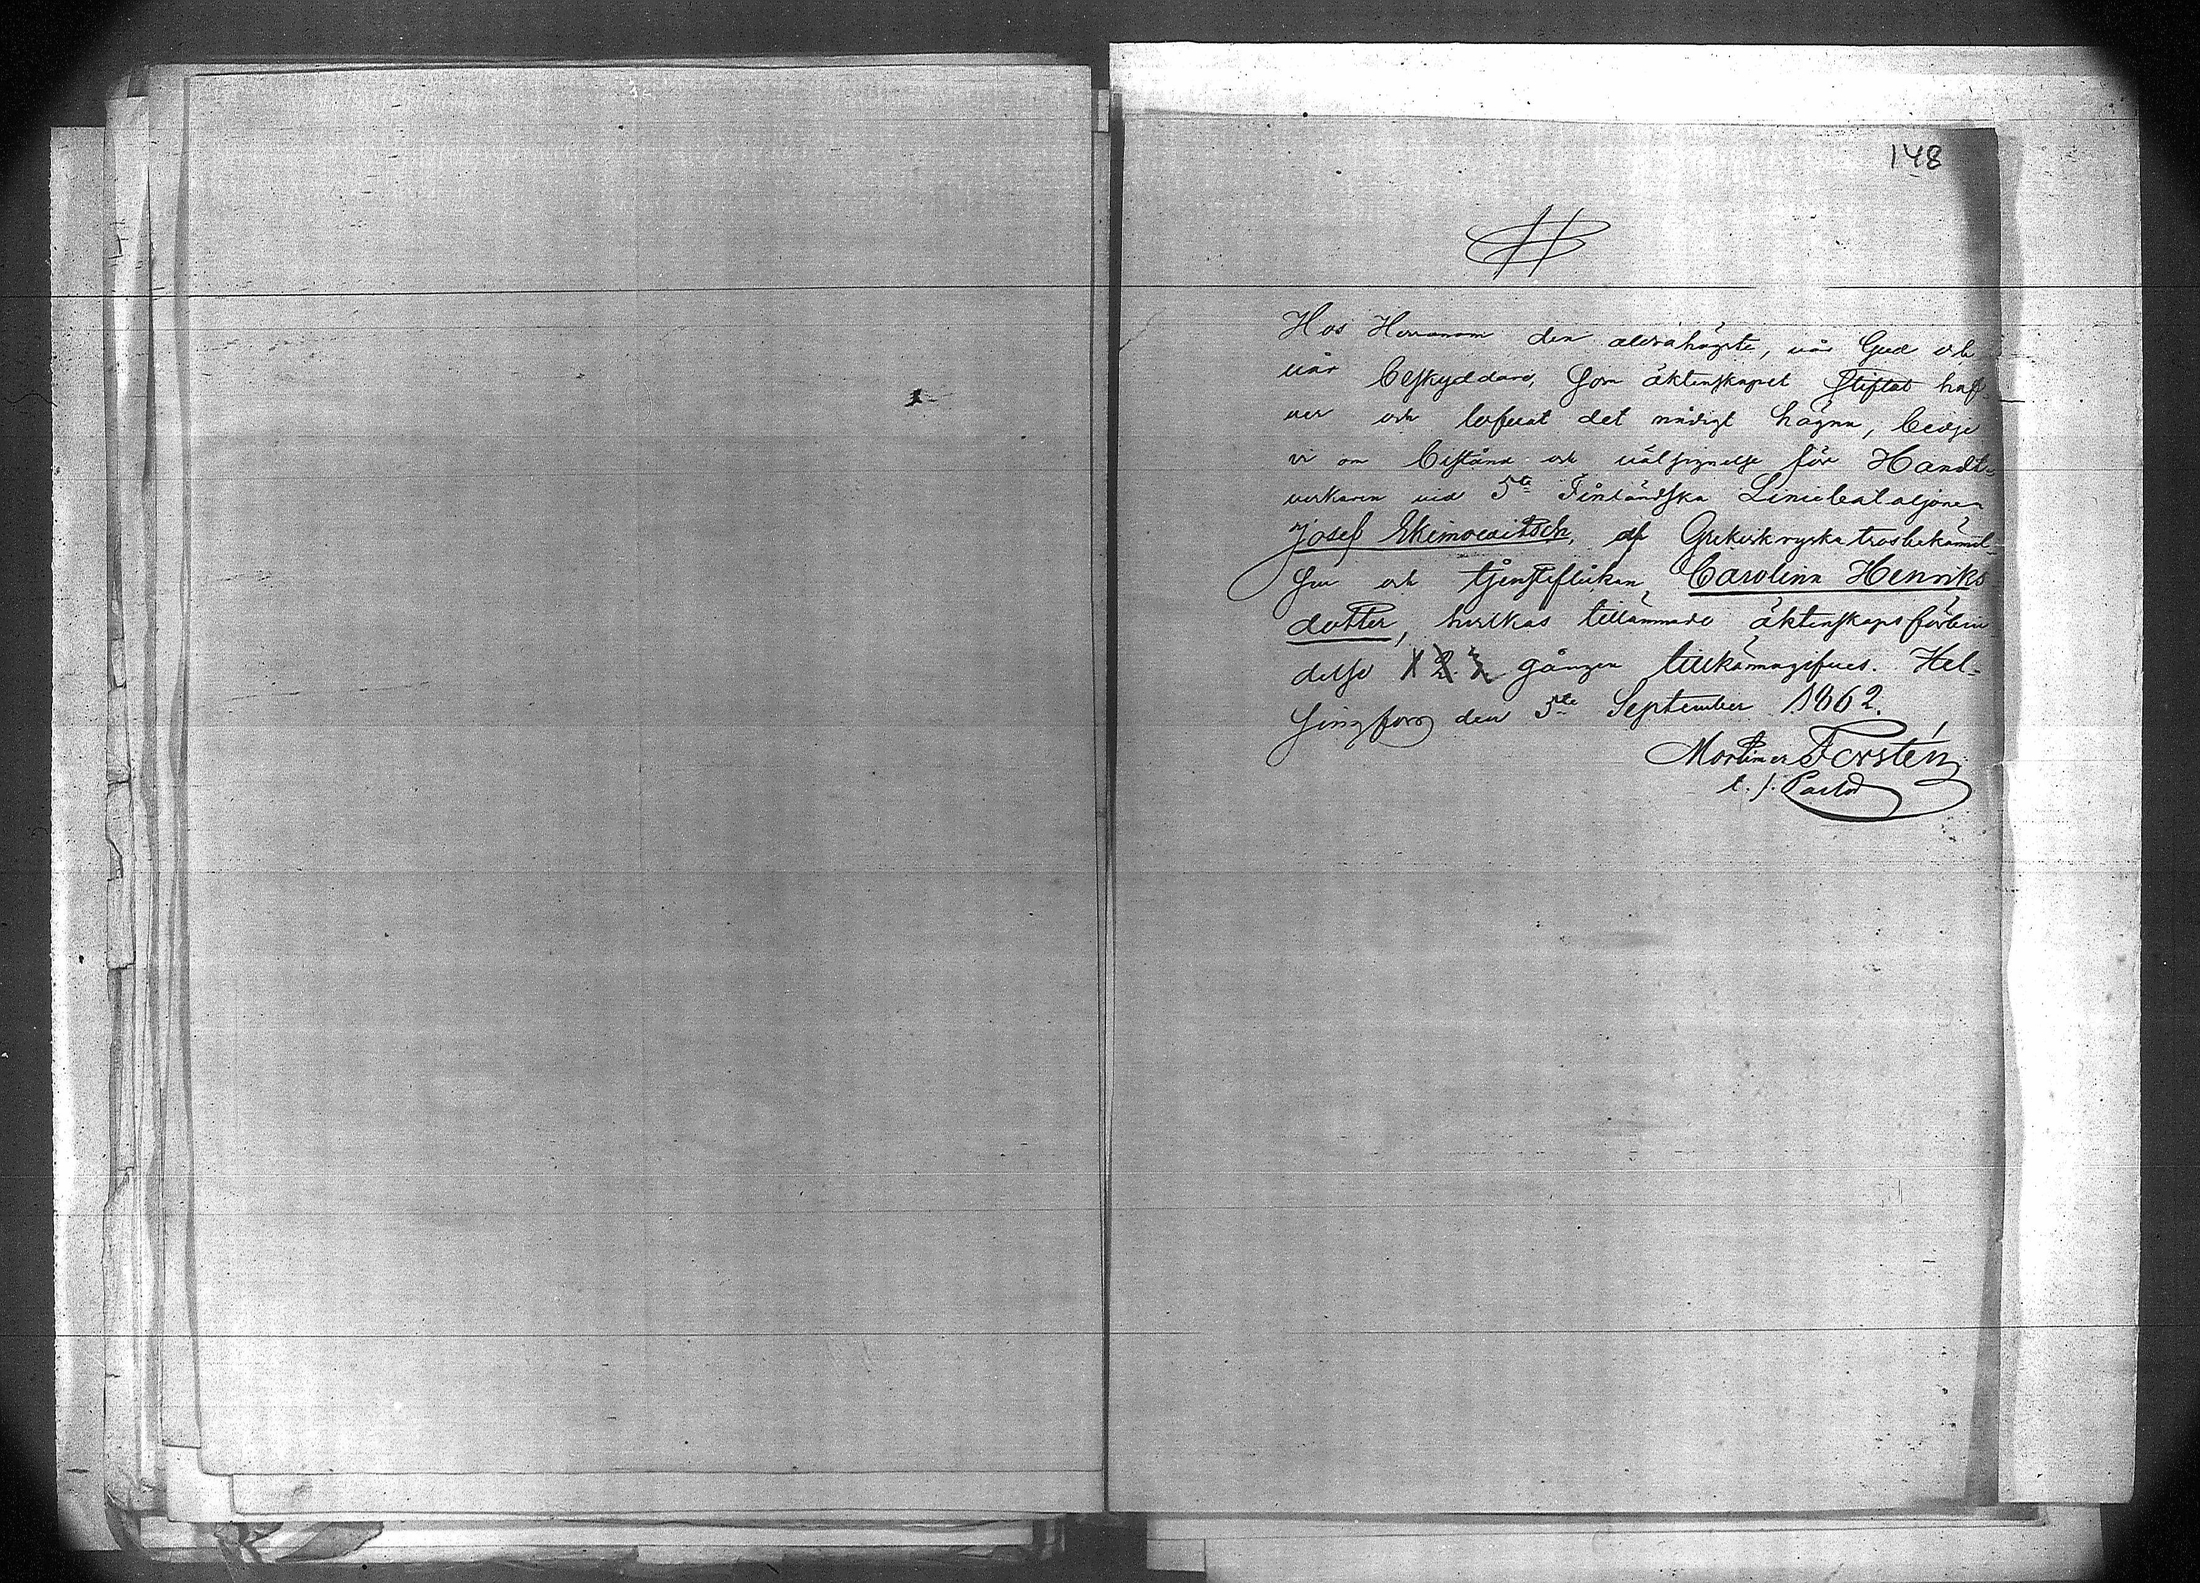 148
Hos Herranom den aldrahögste, vår Gud och
vår beskyddare, som äktenskapet stiftat haf-
ver och lofvat det nådigt hägna, bedje
vi om bistånd och välsignelse för Handt-
verkaren vid 5te Finländska Liniebataljonen
Josef Ekimowitsch, af Grekisk ryska trosbekännel-
sen och tjensteflickan, Carolina Henriks
dotter, hvilkas tillämnade äktenskapsförbin
delse 1 2. 3. gången tillkännagifves. Hel-
singfors den 5te September 1862.
Mortimer Forstén,
t. f. Pastor